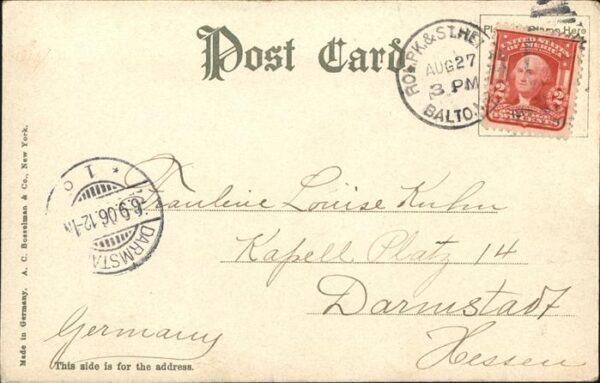 Post Card
ROL.PK.& ST.HE
AUG 27
3 PM
BALTO.
Here
UNITED STATES
OF AMERICA
2 2
TWO CENTS
Made in Germany. A. C. Bosselman & Co., New York.
1
6.9.06.12-1
DARMSTA
Frauleine Louise Kuhn
Kapell Platz 14
Darmstadt
Hessen
Germany
This side is for the address.